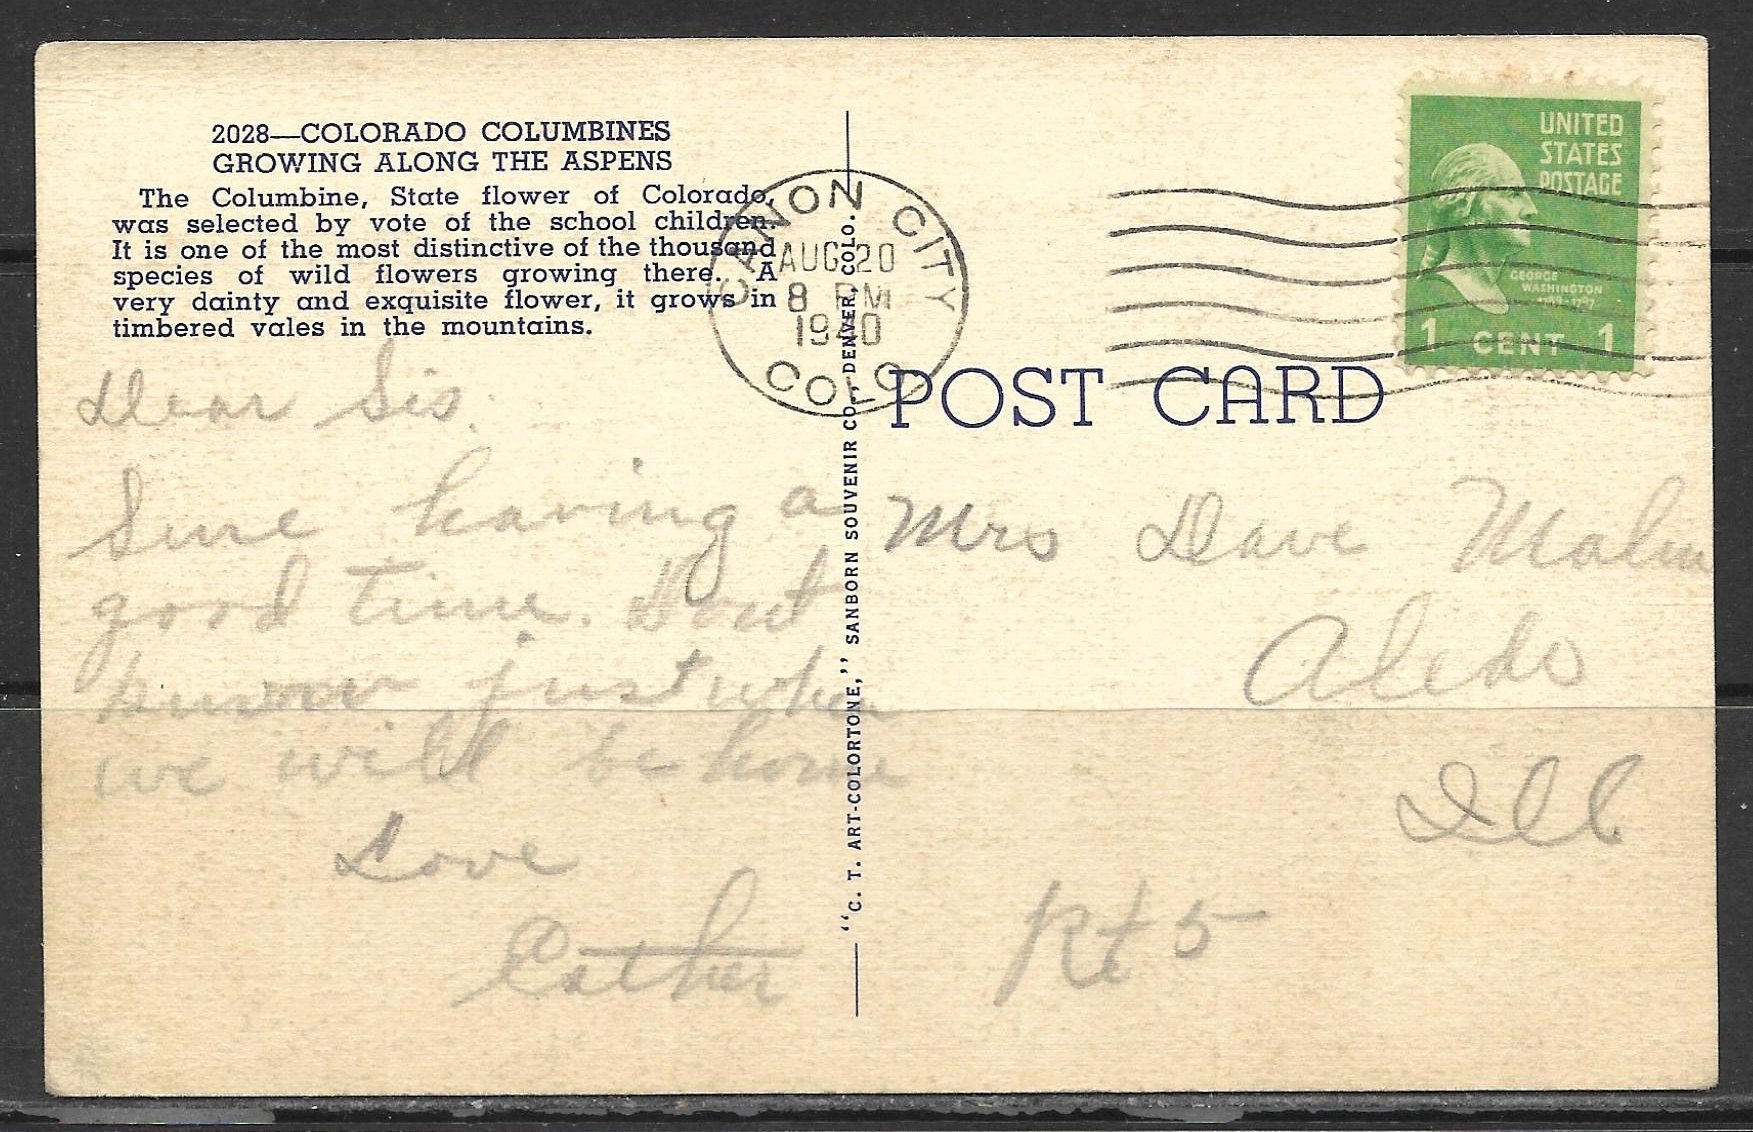 2028—COLORADO COLUMBINES
GROWING ALONG THE ASPENS
The Columbine, State flower of Colorado,
was selected by vote of the school children.
It is one of the most distinctive of the thousand
species of wild flowers growing there. A
very dainty and exquisite flower, it grows in
timbered vales in the mountains.
Dear Sis.
Sure having a
good time. Dont
know just when
we will be home
Love
Esther
"C. T. ART-COLORTONE," SANBORN SOUVENIR CO., DENVER, COLO.
CANON CITY
AUG 20
8 PM
1940
COLO
UNITED
STATES
POSTAGE
GEORGE
WASHINGTON
1789-1797
1 CENT 1
POST CARD
Mrs Dave Malm
Aledo
Ill
Rt 5